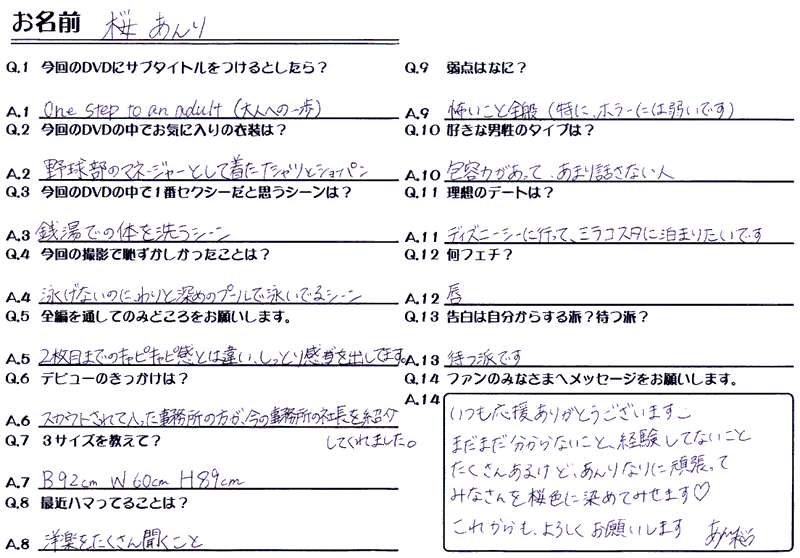 お名前 桜 あんり
Q.1 今回のDVDにサブタイトルをつけるとしたら？
A.1 One step to an adult (大人への一歩)
Q.2 今回のDVDの中でお気に入りの衣装は？
A.2 野球部のマネージャーとして着たTシャツとショーパン
Q.3 今回のDVDの中で1番セクシーだと思うシーンは？
A.3 銭湯での体を洗うシーン
Q.4 今回の撮影で恥ずかしかったことは？
A.4 泳げないのに、わりと深めのプールで泳いでるシーン
Q.5 全編を通してのみどころをお願いします。
A.5 2枚目までのキャピキャピ感とは違い、しっとり感を出してます。
Q.6 デビューのきっかけは？
A.6 スカウトされて入った事務所の方が、今の事務所の社長を紹介
してくれました。
Q.7 3サイズを教えて？
A.7 B92cm W60cm H89cm
Q.8 最近ハマってることは？
A.8 洋楽をたくさん聞くこと
Q.9 弱点はなに？
A.9 怖いこと全般 (特に、ホラーには弱いです)
Q.10 好きな男性のタイプは？
A.10 包容力があって、あまり話さない人
Q.11 理想のデートは？
A.11 ディズニーシーに行って、ミラコスタに泊まりたいです
Q.12 何フェチ？
A.12 唇
Q.13 告白は自分からする派？待つ派？
A.13 待つ派です
Q.14 ファンのみなさまへメッセージをお願いします。
A.14
いつも応援ありがとうございます
まだまだ分からないこと、経験してないこと
たくさんあるけど、あんりなりに頑張って
みなさんを桜色に染めてみせます♡
これからも、よろしくお願いします